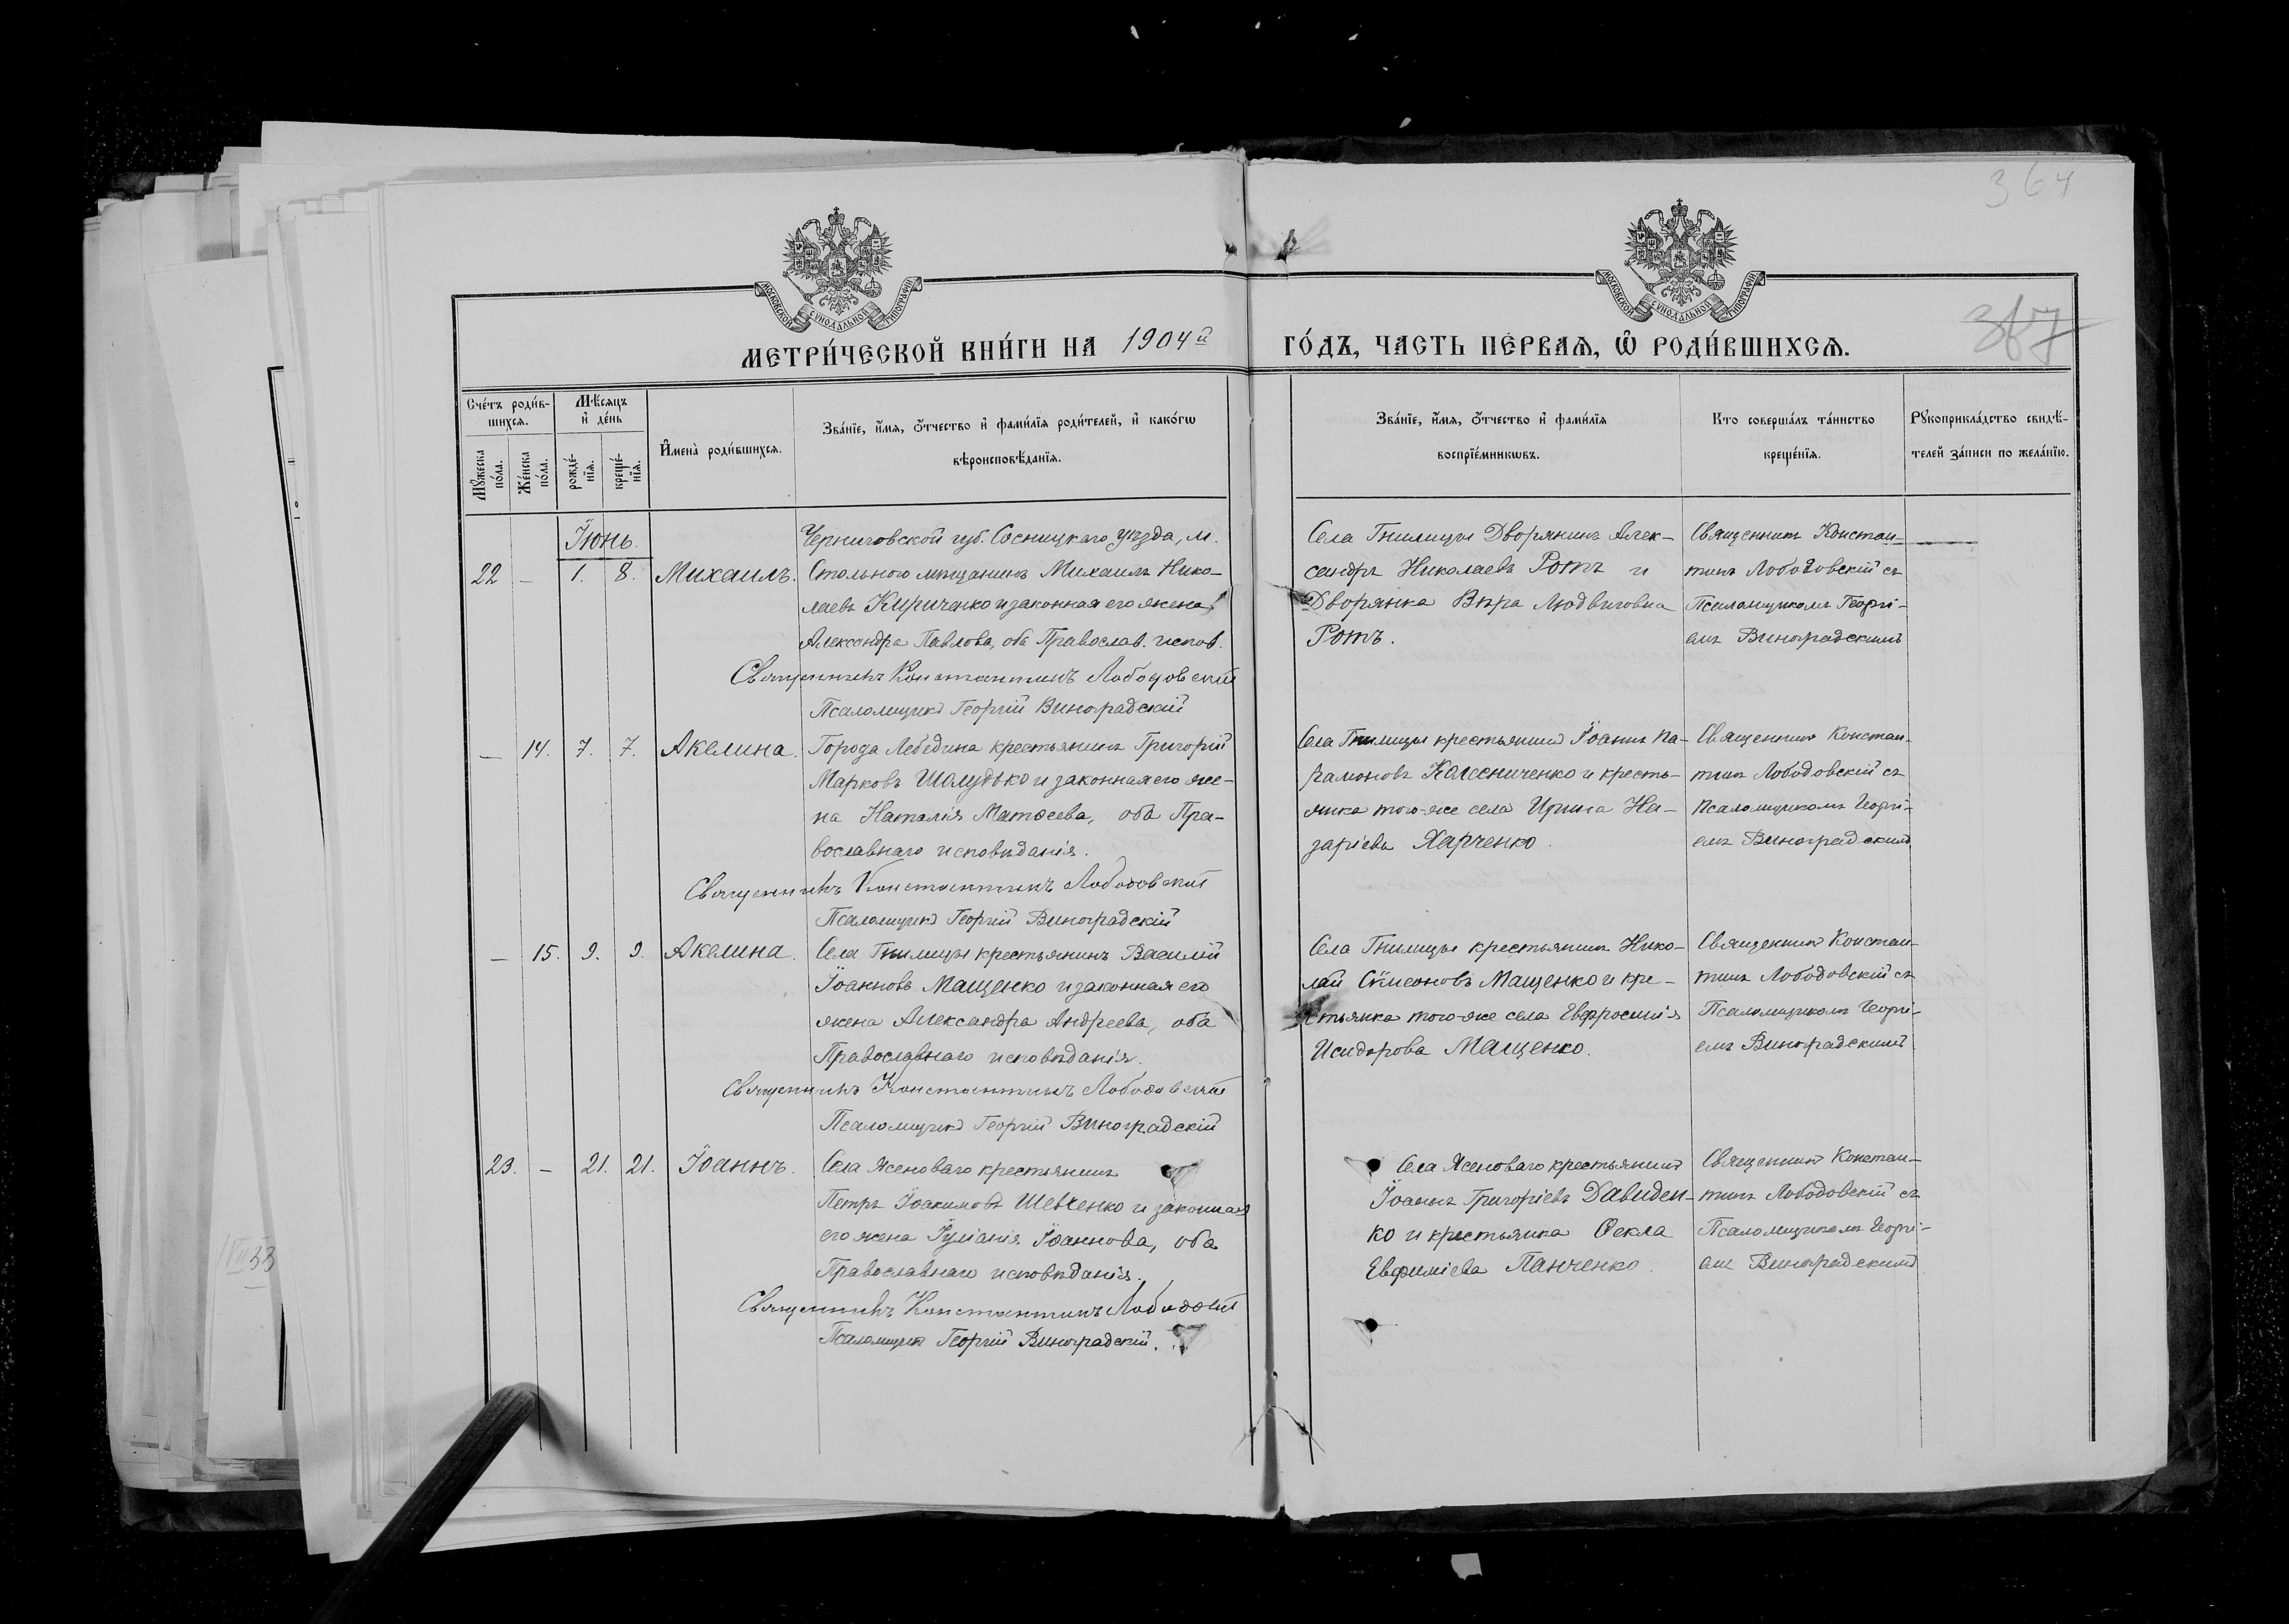 364
МОСКОВСКОЙ СѴНОДАЛЬНОЙ ТИПОГРАФІИ
МОСКОВСКОЙ СѴНОДАЛЬНОЙ ТИПОГРАФІИ
МЕТРИ́ЧЕСКОЙ КНИ́ГИ НА 1904й
ГО́ДЪ, ЧАСТЬ ПЕ́РВАѦ, Ѡ҆ РОДИ́ВШИХСѦ.
Сче́тъ роди́в-
шихсѧ.
Мꙋ́жеска
по́ла.
Же́нска
по́ла.
Мѣ́сяцъ
и҆ де́нь
рожде́-
нїѧ.
креще́-
нїѧ.
И҆мена̀ роди́вшихсѧ.
Зва́нїе, и҆́мѧ, ѻ҆́тчество и҆ фами́лїѧ роди́телей, и҆ како́гѡ
вѣроисповѣ́данїѧ.
Зва́нїе, и҆́мѧ, ѻ҆́тчество и҆ фами́лїѧ
воспрїе́мникѡвъ.
Кто соверша́лъ та́инство
креще́нїѧ.
Рꙋкоприкла́дство свидѣ́-
телей за́писи по жела́нїю.
Іюнь.
22 – 1. 8. Михаилъ.
Черниговской губ. Сосницкаго уѣзда, м.
Стольного мѣщанинъ Михаилъ Нико-
лаевъ Кириченко и законная его жена
Александра Павлова, оба Православ. испов.
Священникъ Константинъ Лободовскій
Псаломщикъ Георгій Виноградскій
Села Гнилицы Дворянинъ Алек-
сандръ Николаевъ Ротъ и
Дворянка Вѣра Людвиговна
Ротъ.
Священникъ Констан-
тинъ Лободовскій съ
Псаломщикомъ Георгі-
емъ Виноградскимъ
– 14. 7. 7. Акелина.
Города Лебедина крестьянинъ Григорій
Марковъ Шолудько и законная его же-
на Наталія Матѳеева, оба Пра-
вославнаго исповѣданія.
Священникъ Константинъ Лободовскій
Псаломщикъ Георгій Виноградскій
Села Гнилицы крестьянинъ Іоаннъ Па-
рамоновъ Колесниченко и кресть-
янка того-же села Ирина На-
заріева Харченко.
Священникъ Констан-
тинъ Лободовскій съ
Псаломщикомъ Георгі-
емъ Виноградскимъ
– 15. 9. 9. Акелина.
Села Гнилицы крестьянинъ Василій
Іоанновъ Мащенко и законная его
жена Александра Андреева, оба
Православнаго исповѣданія.
Священникъ Константинъ Лободовскій
Псаломщикъ Георгій Виноградскій
Села Гнилицы крестьянинъ Нико-
лай Сѵмеоновъ Мащенко и кре-
стьянка того-же села Евфросинія
Исидорова Мащенко.
Священникъ Констан-
тинъ Лободовскій съ
Псаломщикомъ Георгі-
емъ Виноградскимъ
23. – 21. 21. Іоаннъ.
Села Ясеноваго крестьянинъ
Петръ Іоакимовъ Шевченко и законная
его жена Іуліанія Іоаннова, оба
Православнаго исповѣданія.
Священникъ Константинъ
Псаломщикъ Георгій Виноградскій.
Села Ясеноваго крестьянинъ
Іоаннъ Григоріевъ Давиден-
ко и крестьянка Ѳекла
Евфиміева Панченко.
Священникъ Констан-
тинъ Лободовскій съ
Псаломщикомъ Георгі-
емъ Виноградскимъ
33